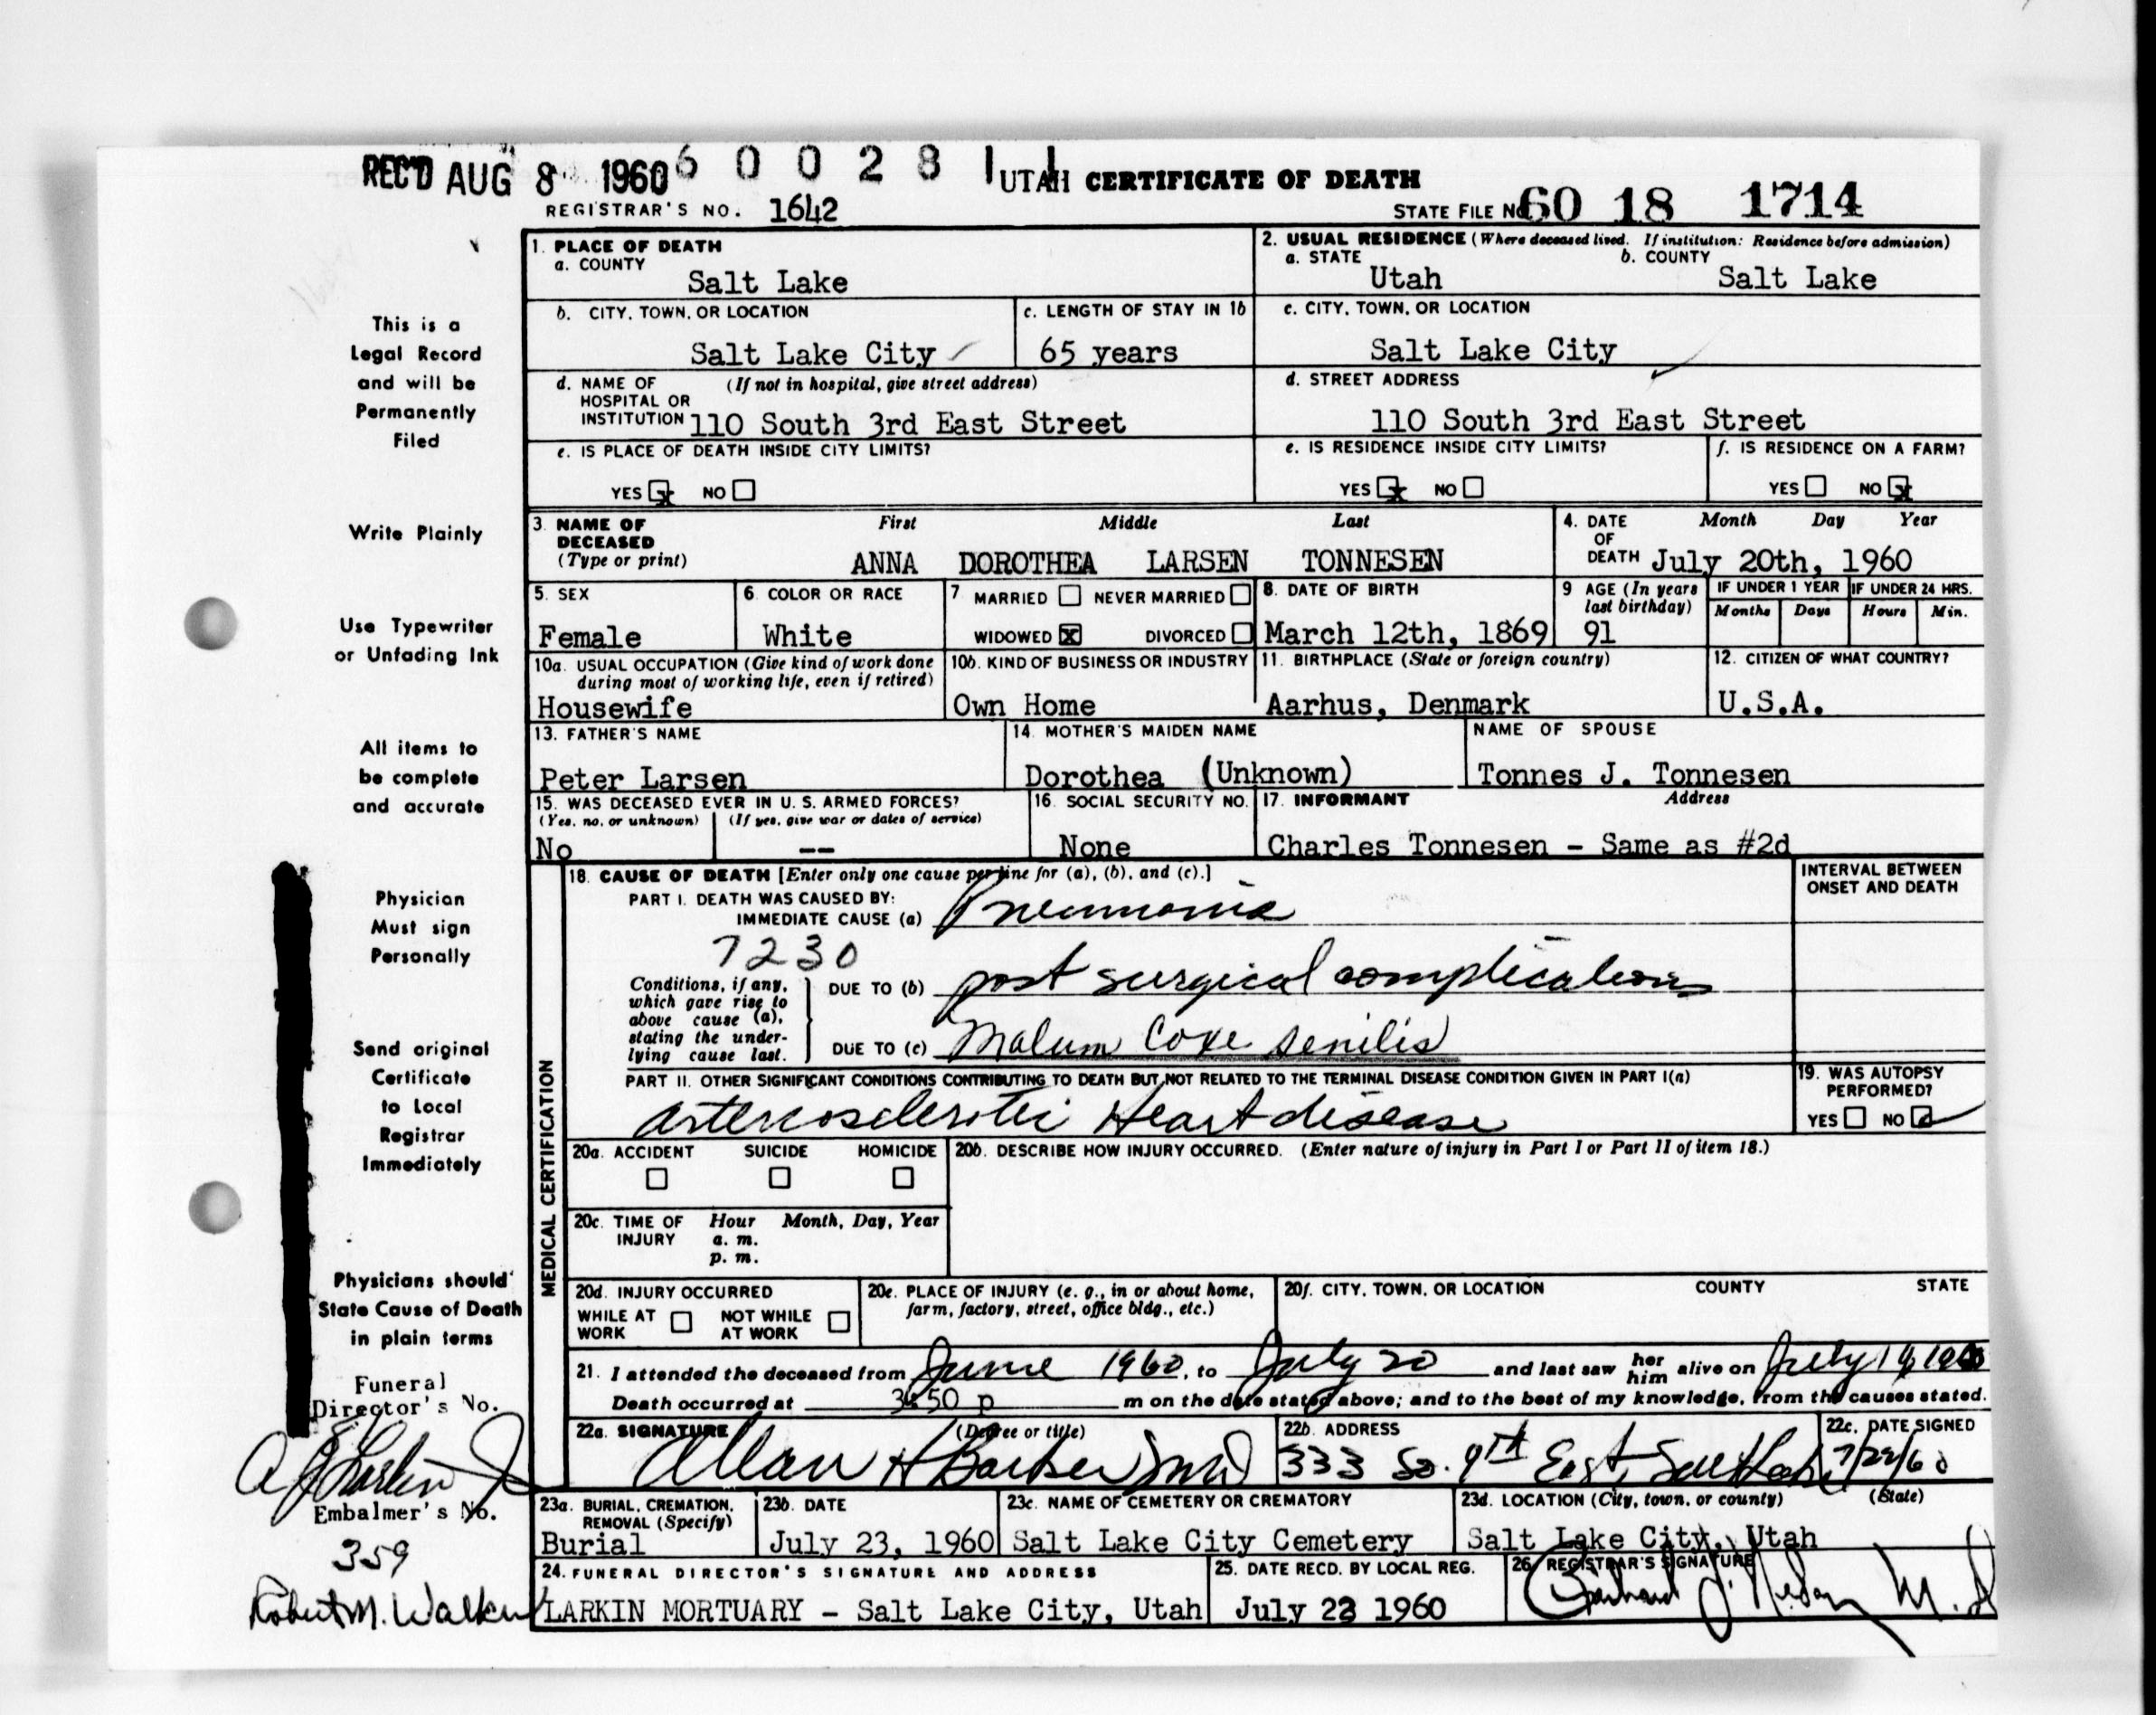 REC'D AUG 8 1960 6 0 0 2 8 1 1 UTAH CERTIFICATE OF DEATH
REGISTRAR'S NO. 1642 STATE FILE NO. 60 18 1714
1. PLACE OF DEATH 2. USUAL RESIDENCE (Where deceased lived. If institution: Residence before admission)
a. COUNTY a. STATE b. COUNTY
Salt Lake Utah Salt Lake
b. CITY, TOWN, OR LOCATION c. LENGTH OF STAY IN 1b c. CITY, TOWN, OR LOCATION
Salt Lake City 65 years Salt Lake City
d. NAME OF (If not in hospital, give street address) d. STREET ADDRESS
HOSPITAL OR
INSTITUTION 110 South 3rd East Street 110 South 3rd East Street
e. IS PLACE OF DEATH INSIDE CITY LIMITS? e. IS RESIDENCE INSIDE CITY LIMITS? f. IS RESIDENCE ON A FARM?
YES x NO YES x NO YES NO x
3. NAME OF First Middle Last 4. DATE Month Day Year
DECEASED OF
(Type or print) ANNA DOROTHEA LARSEN TONNESEN DEATH July 20th, 1960
5. SEX 6. COLOR OR RACE 7. MARRIED NEVER MARRIED 8. DATE OF BIRTH 9. AGE (In years last birthday) IF UNDER 1 YEAR IF UNDER 24 HRS.
Months Days Hours Min.
Female White WIDOWED X DIVORCED March 12th, 1869 91
10a. USUAL OCCUPATION (Give kind of work done 10b. KIND OF BUSINESS OR INDUSTRY 11. BIRTHPLACE (State or foreign country) 12. CITIZEN OF WHAT COUNTRY?
during most of working life, even if retired)
Housewife Own Home Aarhus, Denmark U.S.A.
13. FATHER'S NAME 14. MOTHER'S MAIDEN NAME NAME OF SPOUSE
Peter Larsen Dorothea (Unknown) Tonnes J. Tonnesen
15. WAS DECEASED EVER IN U. S. ARMED FORCES? 16. SOCIAL SECURITY NO. 17. INFORMANT Address
(Yes, no, or unknown) (If yes, give war or dates of service)
No -- None Charles Tonnesen - Same as #2d
MEDICAL CERTIFICATION
18. CAUSE OF DEATH [Enter only one cause per line for (a), (b), and (c).] INTERVAL BETWEEN
ONSET AND DEATH
PART I. DEATH WAS CAUSED BY:
IMMEDIATE CAUSE (a) Pneumonia
7230
Conditions, if any, DUE TO (b) post surgical complications
which gave rise to
above cause (a),
stating the under-
lying cause last. DUE TO (c) Malum Coxe Senilis
PART II. OTHER SIGNIFICANT CONDITIONS CONTRIBUTING TO DEATH BUT NOT RELATED TO THE TERMINAL DISEASE CONDITION GIVEN IN PART I(a) 19. WAS AUTOPSY
PERFORMED?
Arteriosclerotic Heart disease YES NO
20a. ACCIDENT SUICIDE HOMICIDE 20b. DESCRIBE HOW INJURY OCCURRED. (Enter nature of injury in Part I or Part II of item 18.)
20c. TIME OF Hour Month, Day, Year
INJURY a. m.
p. m.
20d. INJURY OCCURRED 20e. PLACE OF INJURY (e. g., in or about home, 20f. CITY, TOWN, OR LOCATION COUNTY STATE
farm, factory, street, office bldg., etc.)
WHILE AT WORK NOT WHILE AT WORK
21. I attended the deceased from June 1960, to July 20 and last saw her him alive on July 19, 1960
Death occurred at 3:50 p m on the date stated above; and to the best of my knowledge, from the causes stated.
22a. SIGNATURE (Degree or title) 22b. ADDRESS 22c. DATE SIGNED
Allan H Barker MD 333 So. 9th East, Salt Lake 7/22/60
23a. BURIAL, CREMATION, 23b. DATE 23c. NAME OF CEMETERY OR CREMATORY 23d. LOCATION (City, town, or county) (State)
REMOVAL (Specify)
Burial July 23, 1960 Salt Lake City Cemetery Salt Lake City, Utah
24. FUNERAL DIRECTOR'S SIGNATURE AND ADDRESS 25. DATE RECD. BY LOCAL REG. 26. REGISTRAR'S SIGNATURE
LARKIN MORTUARY - Salt Lake City, Utah July 23 1960
This is a
Legal Record
and will be
Permanently
Filed
Write Plainly
Use Typewriter
or Unfading Ink
All items to
be complete
and accurate
Physician
Must sign
Personally
Send original
Certificate
to Local
Registrar
Immediately
Physicians should
State Cause of Death
in plain terms
Funeral
Director's No.
Embalmer's No.
359
Robert M. Walker